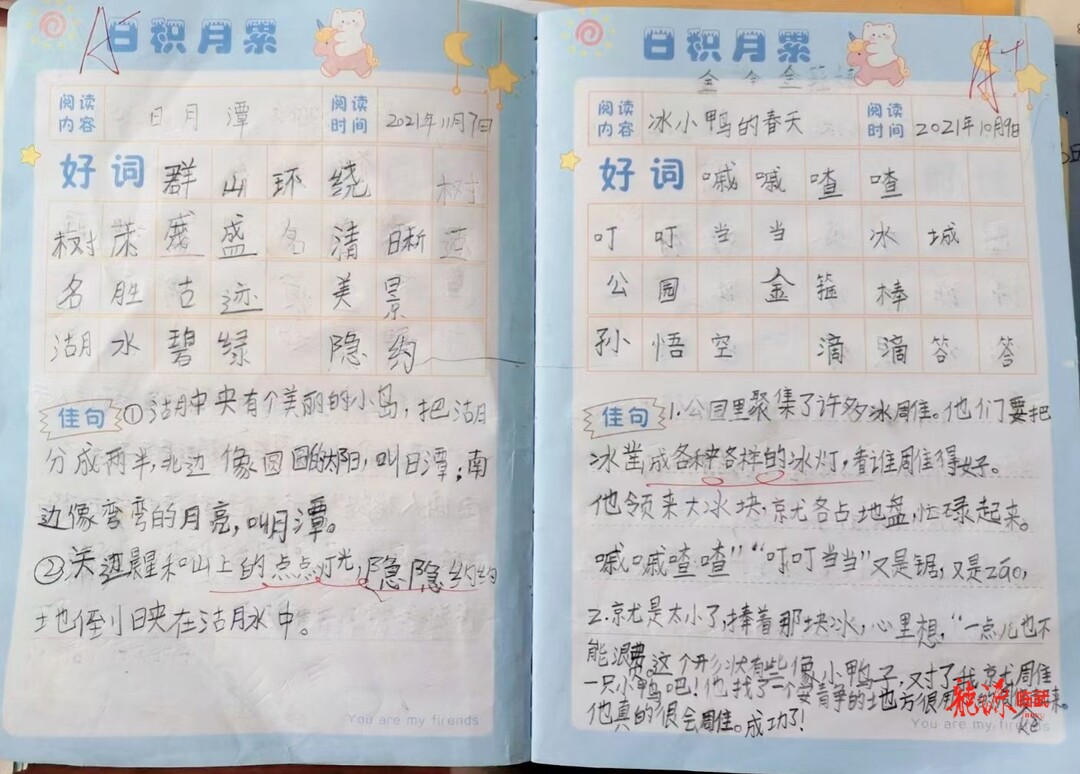 A
日积月累
阅读内容 日月潭 阅读时间 2021年11月7日
好词 群山环绕
树茂盛 清晰
名胜古迹 美景
湖水碧绿 隐约
佳句 ①湖中央有个美丽的小岛，把湖
分成两半，北边像圆圆的太阳，叫日潭；南
边像弯弯的月亮，叫月潭。
②天边晨星和山上的点点灯光，隐隐约约
地倒映在湖水中。
You are my firends
A+
日积月累
阅读内容 冰小鸭的春天 阅读时间 2021年10月9日
好词 嘁嘁喳喳
叮叮当当 冰城
公园 金箍棒
孙悟空 滴滴答答
佳句 1.公园里聚集了许多冰周隹。他们要把
冰凿成各种各样的冰灯，看谁周隹得好。
他领来大冰块，京尤各占地盘，忙碌起来。
嘁嘁喳喳""叮叮当当"又是锯，又是záo，
2.京尤是太小了，捧着那块冰，心里想，"一点儿也不
能浪费。这个形状有些像小鸭子，对了我京尤周隹
一只小鸭吧！他找了一个安青争的地方很用
他真的很会周隹。成功了！
You are my firends